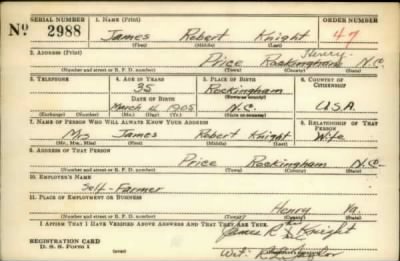 SERIAL NUMBER 1. NAME (Print) ORDER NUMBER
No 2988 James Robert Knight 47
(First) (Middle) (Last)
2. ADDRESS (Print) Henry
Price Rockingham N.C.
(Number and street or R. F. D. number) (Town) (County) (State)
3. TELEPHONE 4. AGE IN YEARS 5. PLACE OF BIRTH 6. COUNTRY OF CITIZENSHIP
35 Rockingham
(Town or county)
DATE OF BIRTH
March 4, 1905 N.C. U.S.A.
(Exchange) (Number) (Mo.) (Day) (Yr.) (State or country)
7. NAME OF PERSON WHO WILL ALWAYS KNOW YOUR ADDRESS 8. RELATIONSHIP OF THAT PERSON
Mrs James Robert Knight Wife
(Mr., Mrs., Miss) (First) (Middle) (Last)
9. ADDRESS OF THAT PERSON
Price Rockingham N.C.
(Number and street or R. F. D. number) (Town) (County) (State)
10. EMPLOYER'S NAME
Self-Farmer
11. PLACE OF EMPLOYMENT OR BUSINESS
Henry Va.
(Number and street or R. F. D. number) (Town) (County) (State)
I AFFIRM THAT I HAVE VERIFIED ABOVE ANSWERS AND THAT THEY ARE TRUE.
James R. Knight
REGISTRATION CARD
D. S. S. Form 1 Wit: